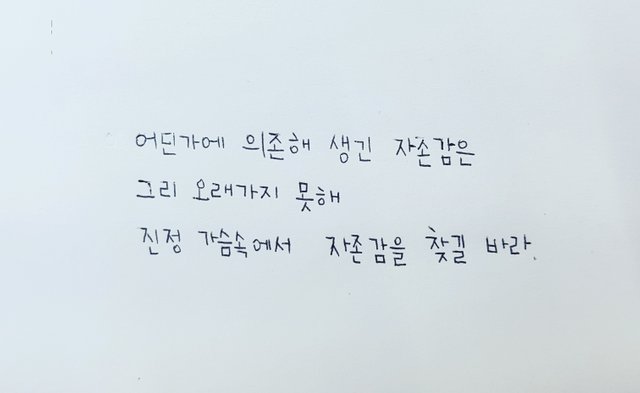 어딘가에 의존해 생긴 자존감은
그리 오래가지 못해
진정 가슴속에서 자존감을 찾길 바라.